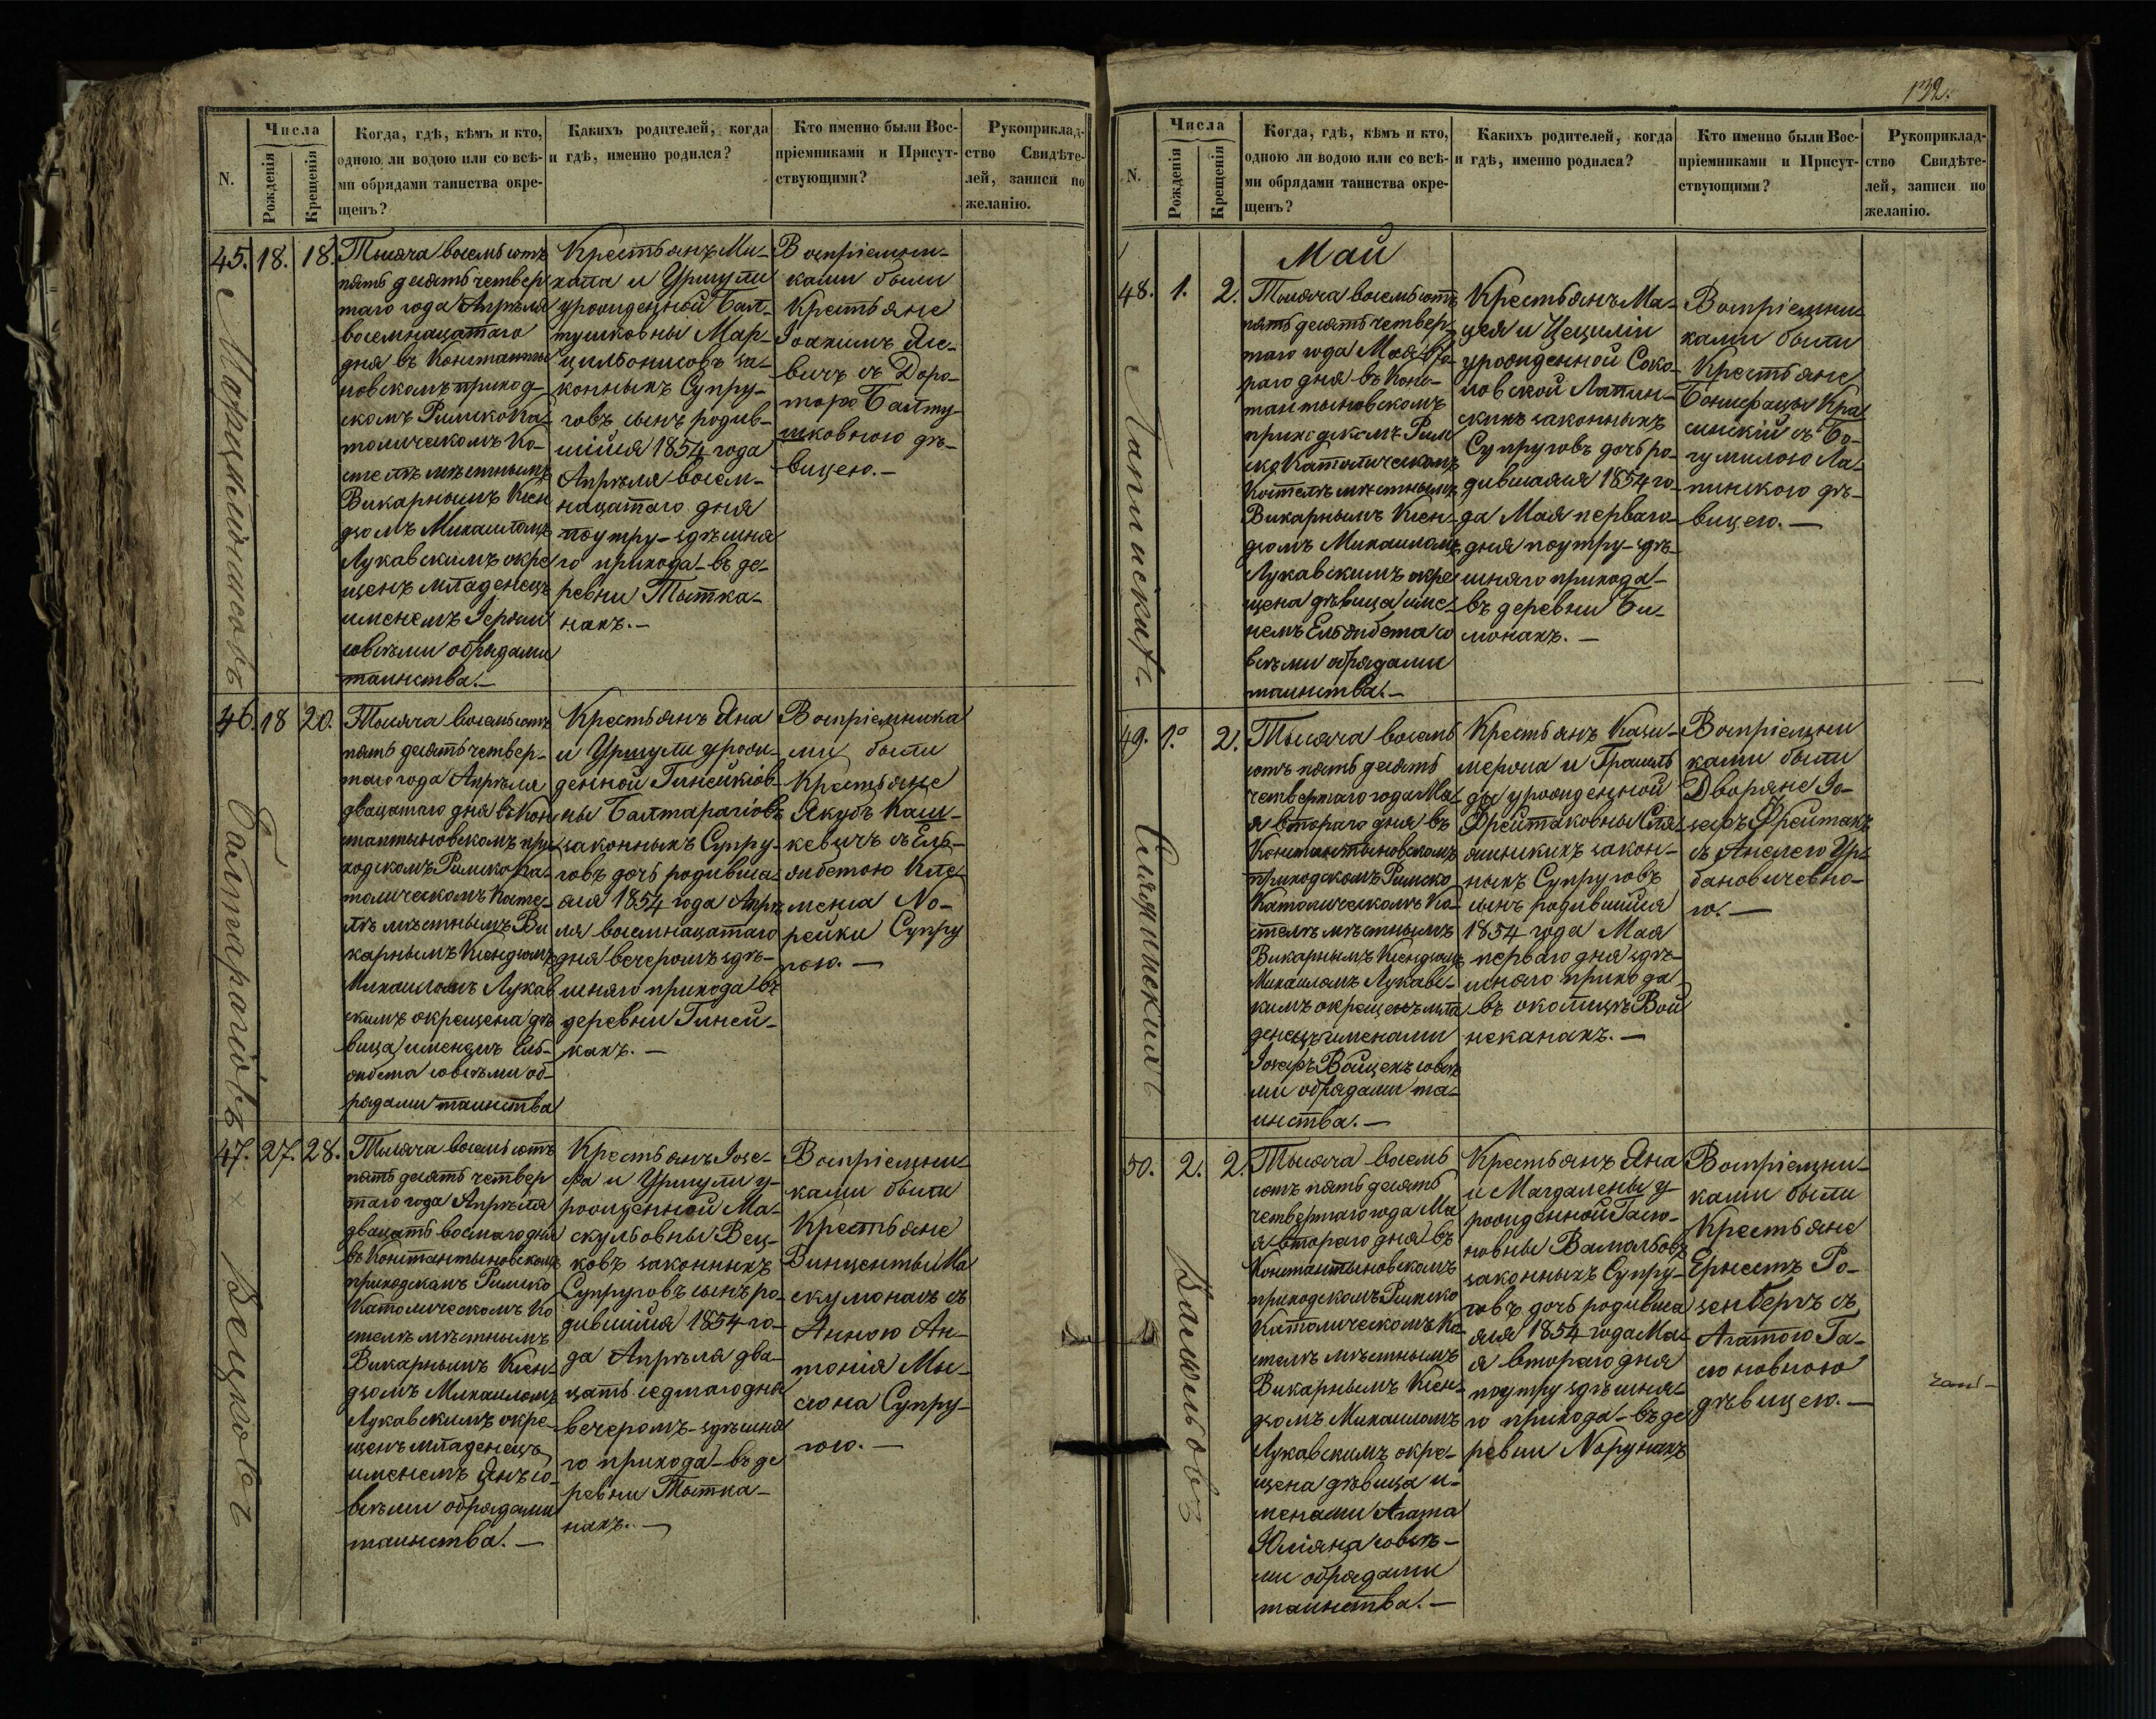 N.
Числа
Рожденія
Крещенія
Когда, гдѣ, кѣмъ и кто,
одною ли водою или со всѣ-
ми обрядами таинства окре-
щенъ?
Какихъ родителей, когда
и гдѣ, именно родился?
Кто именно были Вос-
пріемниками и Присут-
ствующими?
Рукоприклад-
ство Свидѣте-
лей, записи по
желанію.
45.
18.
18.
Тысяча восемьсотъ
пять десять четвер
таго года Апрѣля
восемнацатаго
дня въ Константы
новскомъ приход-
скомъ Римско Ка-
толическомъ Ко-
стелѣ мѣстнымъ
Викарнымъ Ксен
дзомъ Михаиломъ
Лукавскимъ окре
щенъ младенецъ
именемъ Іержи
совсѣми обрядами
таинства.—
Крестьянъ Ми-
хала и Уршули
урожденной Бал-
тушковны Мар-
цинёнисовъ за-
конныхъ Супру-
говъ сынъ родив-
шійся 1854 года
Апрѣля восем-
нацатаго дня
поутру-здѣшня
го прихода-въ де-
ревни Тытка-
нахъ.—
Воспріемни-
ками были
Крестьяне
Іоахимъ
съ Доро-
тою Балту-
шковною дѣ-
вицею.—
46.
18
20.
Тысяча восемьсотъ
пять десять четвер-
таго года Апрѣля
двацатаго дня въ Кон
стантыновскомъ при
ходскомъ Римско Ка-
толическомъ Косте-
лѣ мѣстнымъ Ви
карнымъ Ксендзомъ
Михаиломъ Лукав
скимъ окрещена дѣ
вица именемъ Ель-
жбета совсѣми об-
рядами таинства
Крестьянъ Яна
и Уршули урож-
денной Гинейкіов
ны Балтарагіовъ
законныхъ Супру-
говъ дочь родивша-
яся 1854 года Апрѣ
ля восемнацатаго
дня вечеромъ здѣ-
шняго прихода въ
деревни Гиней-
кахъ.—
Воспріемника
ми были
Крестьяне
Якубъ Каш-
кевичъ съ Ель-
жбетою Кле-
менса No-
рейки Супру
гою.—
47.
27.
28.
Тысяча восемьсотъ
пять десять четвер
таго года Апрѣля
двацать восмаго дня
въ Константыновскомъ
приходскомъ Римско
Католическомъ Ко
стелѣ мѣстнымъ
Викарнымъ Ксен-
дзомъ Михаиломъ
Лукавскимъ окре-
щенъ младенецъ
именемъ Янъ со-
всѣми обрядами
таинства.—
Крестьянъ Іозе-
фа и Уршули у-
рожденной Ма-
скульовны Вец-
ковъ законныхъ
Супруговъ сынъ ро-
дившійся 1854 го-
да Апрѣля два-
цать седмаго дня
вечеромъ-здѣшня
го прихода-въ де
ревни Тытка-
нахъ.—
Воспріемни-
ками были
Крестьяне
Винценты Ма
скумонасъ съ
Анною Ан-
тонія Мы-
сюна Супру-
гою.—
Балтарагіовъ
Вецковъ
132.
N.
Числа
Рожденія
Крещенія
Когда, гдѣ, кѣмъ и кто,
одною ли водою или со всѣ-
ми обрядами таинства окре-
щенъ?
Какихъ родителей, когда
и гдѣ, именно родился?
Кто именно были Вос-
пріемниками и Присут-
ствующими?
Рукоприклад-
ство Свидѣте-
лей, записи по
желанію.
Май
48.
1.
2.
Тысяча восемьсотъ
пять десять четвер
таго года Мая вто-
раго дня въ Конс-
тантыновскомъ
приходскомъ Рим
ско Католическомъ
Костелѣ мѣстнымъ
Викарнымъ Ксен-
дзомъ Михаиломъ
Лукавскимъ окре
щена дѣвица име-
немъ Ельжбета со
всѣми обрядами
таинства.—
Крестьянъ Ма-
цея и Цециліи
урожденной Соко-
ловской Лапин-
скихъ законныхъ
Супруговъ дочь ро-
дившаяся 1854 го-
да Мая перваго
дня поутру-здѣ-
шняго прихода-
въ деревни Би-
монахъ.—
Воспріемни-
ками были
Крестьяне
Бонифацы Кра
синскій съ Бо-
гумилою Ла-
пинскою дѣ-
вицею.—
49.
1.
2.
Тысяча восемь
сотъ пять десять
четвертаго года Ма-
я втораго дня въ
Константыновскомъ
приходскомъ Римско
Католическомъ Ко-
стелѣ мѣстнымъ
Викарнымъ Ксендзомъ
Михаиломъ Лукавс-
кимъ окрещенъ мла
денецъ именами
Іозефъ Войцехъ совсѣ
ми обрядами та-
инства.—
Крестьянъ Кази-
мероса и Граціль
ды урожденной
Фрейтаковны
законныхъ
Супруговъ
сынъ родившійся
1854 года Мая
перваго дня здѣ-
шняго прихода
въ околицѣ Вой
неканахъ.—
Воспріемни
ками были
Дворяне Іо-
зефъ Фрейтакъ
съ Анелею Ур-
бановичевно-
ю.—
50.
2.
2.
Тысяча восемь
сотъ пять десять
четвертаго года Ма
я втораго дня въ
Константыновскомъ
приходскомъ Римско
Католическомъ Ко-
стелѣ мѣстнымъ
Викарнымъ Ксен-
дзомъ Михаиломъ
Лукавскимъ окре-
щена дѣвица и-
менами Агата
Юліяна совсѣ-
ми обрядами
таинства.—
Крестьянъ Яна
и Магдалены у-
рожденной Гасю-
новны
законныхъ Супру-
говъ дочь родивша
яся 1854 года Ма-
я втораго дня
поутру здѣшня-
го прихода-въ де
ревни Nорунахъ
Воспріемни-
ками были
Крестьяне
Ернестъ Ро-
зенбергъ съ
Агатою Га-
сюновною
дѣвицею.—